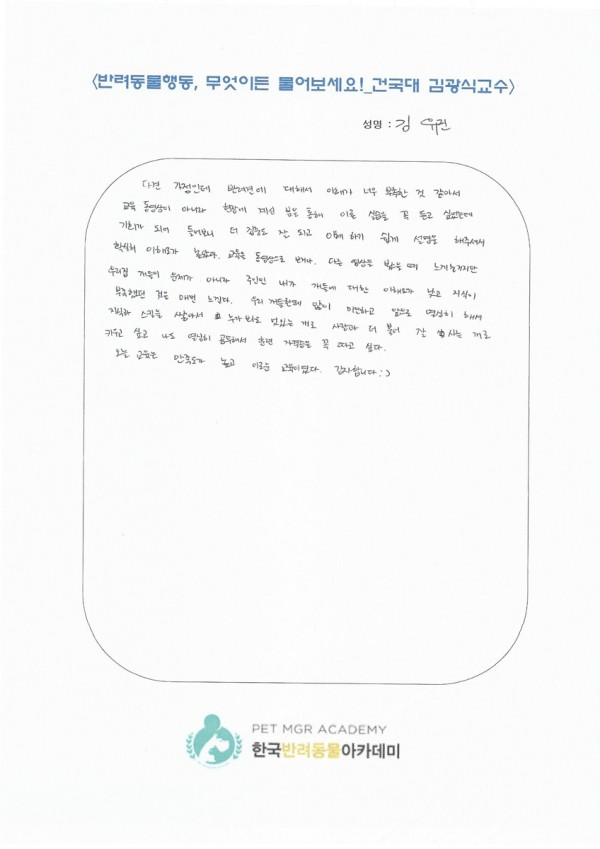 <반려동물행동, 무엇이든 물어보세요!_건국대 김광식교수>
성명 : 김 유진
다견 가정인데 반려견에 대해서 이해가 너무 부족한 것 같아서
교육 동영상이 아니라 현장에 계신 분을 통해 이론 실습을 꼭 듣고 싶었는데
기회가 되어 들어보니 더 집중도 잘 되고 이해하기 쉽게 설명을 해주셔서
확실히 이해도가 높았다. 교육용 동영상으로 보거나 다른 영상을 봤을 때 느끼는거지만
우리집 개들이 문제가 아니라 주인인 내가 개들에 대한 이해도가 낮고 지식이
부족했던 것을 매번 느낀다. 우리 개들한테 많이 미안하고 앞으로 열심히 해서
지식과 스킬을 쌓아서 누가봐도 멋있는 개로 사람과 더 불어 잘 사는 개로
키우고 싶고 나도 열심히 공부해서 훈련 자격증을 꼭 따고 싶다.
오늘 교육은 만족도가 높고 이로운 교육이였다. 감사합니다 :)
PET MGR ACADEMY
한국반려동물아카데미